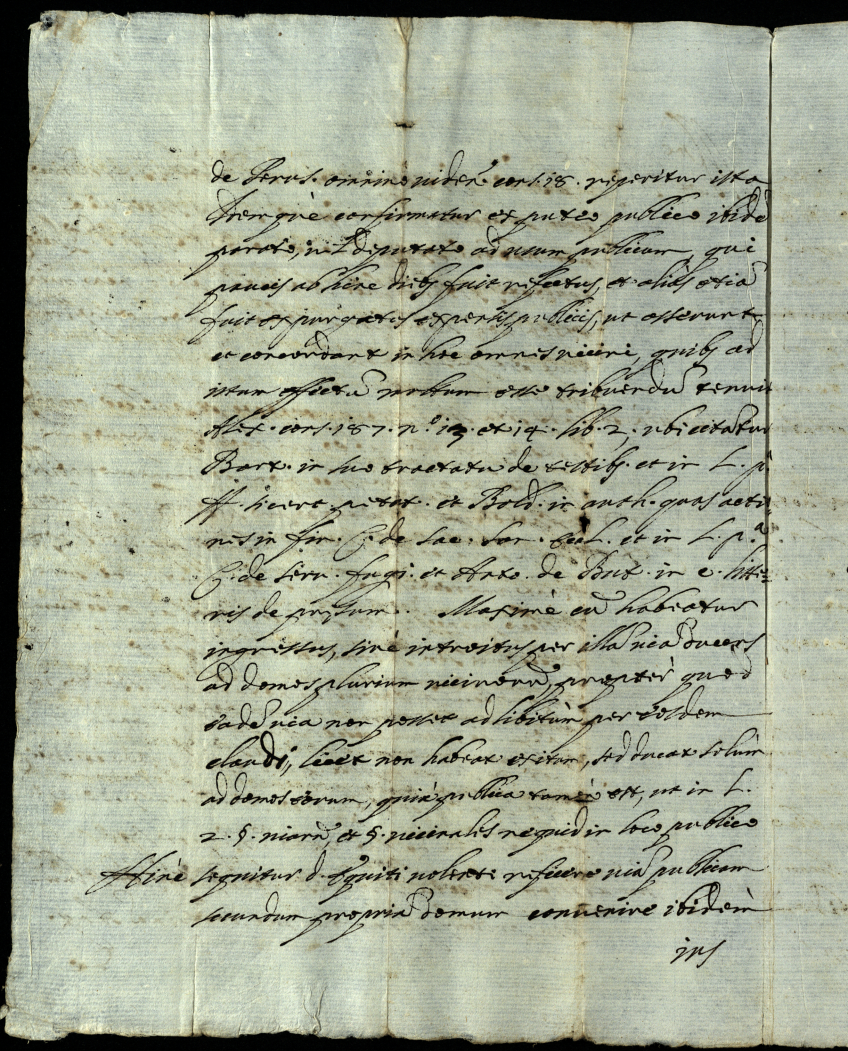 de Perus. omnino viden. cons. 18. reperitur ista
Itemque confirmatur ex puteo publico ibidē
parato, vel deputato ad usum publicum, qui
paucis ab hinc diebꝫ fuit refectus, et alias etiā
fuit expurgatus expensis publicis, ut asserunt
et concordant in hoc omnes vicini, quibꝫ ad
istum effectū multum esse tribuendū tenuit
Alex. cons. 187. nº. 13. et 14. lib. 2, ubi citatur
Bart. in suo tractatu de testibꝫ. et in L. p.
ff. si cert. petat. et Bald. in auth. quas actio
nes in fin. C. de sac. san. Eccl. et in L. p.ª
C. de serv. fugi. et Anto. de But. in c. litte=
ris de presum. Maximè cū habeatur
ingressus, sivè introitus per illā viā ducens
ad domos plurium vicinorū, propter quod
eadē via non posset ad libitum per eosdem
claudi, licet non habeat exitum, sed ducat solùm
ad domos eorum, quià publica tamen est, ut in L.
2. §. viarū, et §. vicinalis ne quid in loco publico
Hinc sequitur d. Equiti volenti reficere viā publicam
secundum propriā domum convenire ibidem
ius